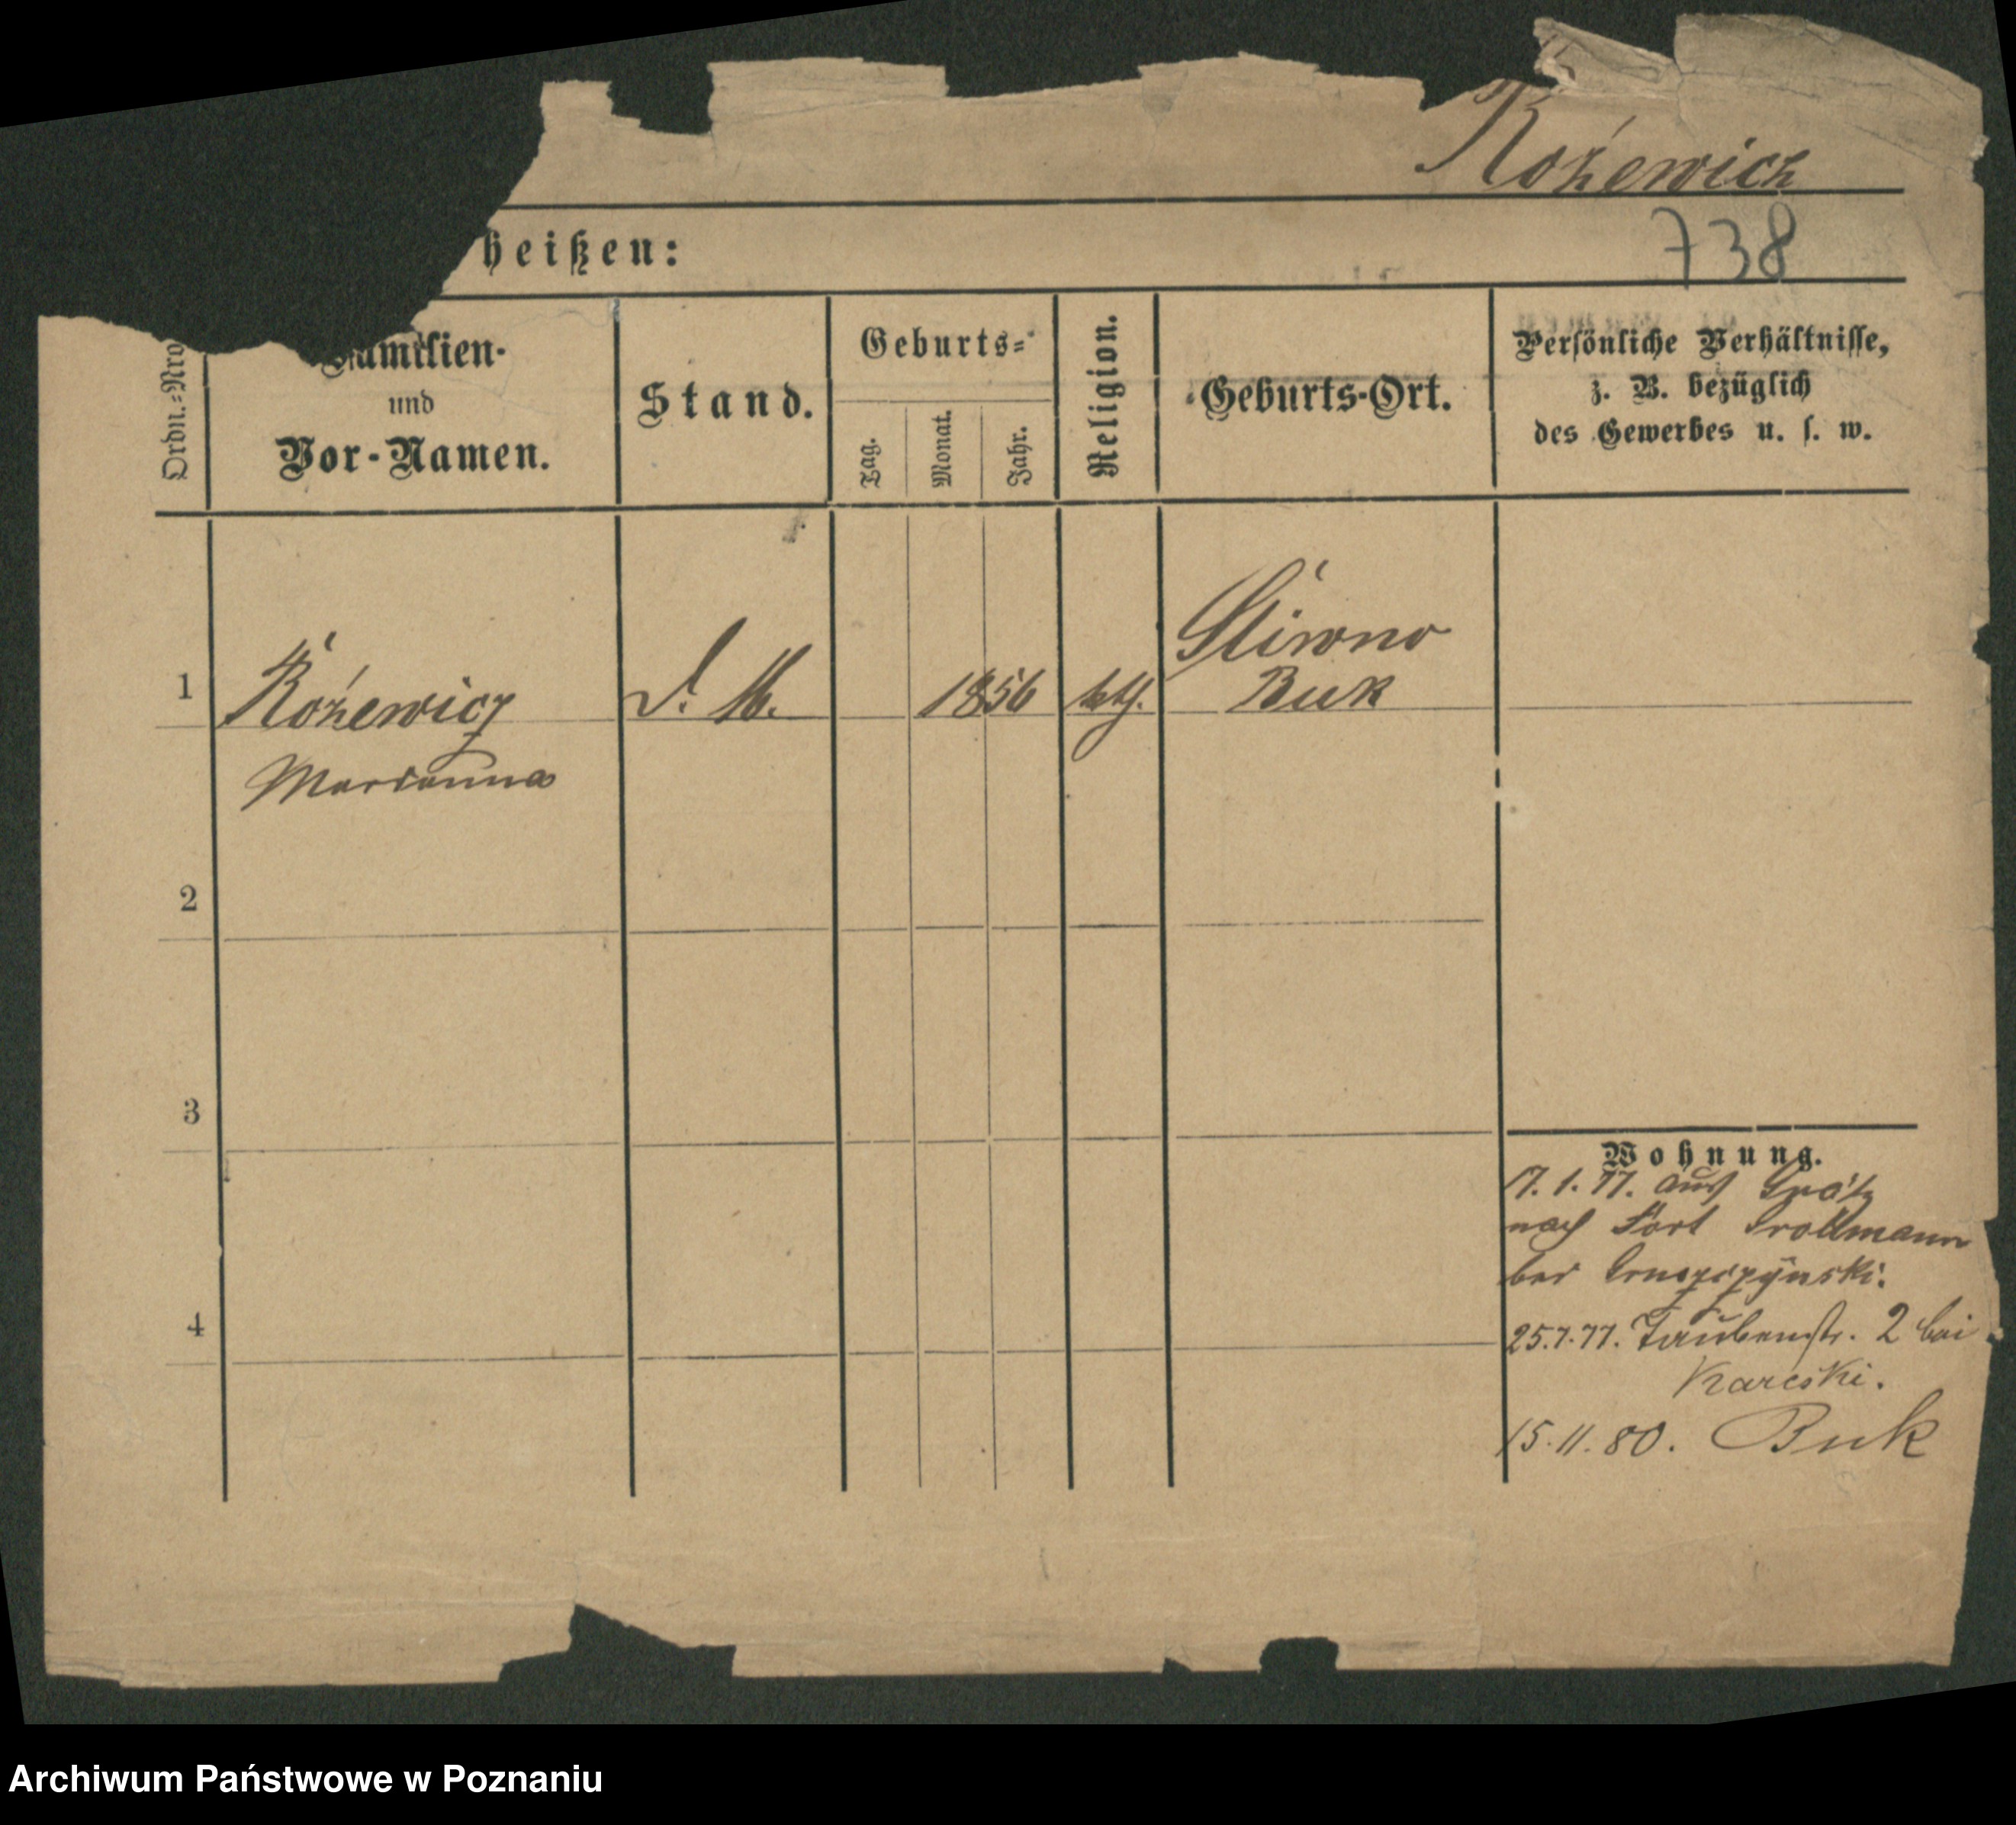 Rożewicz
heißen:
738
Ordn.-Nro
Familien-
und
Vor-Namen.
Stand.
Geburts-
Tag.
Monat.
Jahr.
Religion.
Geburts-Ort.
Persönliche Verhältnisse,
z. B. bezüglich
des Gewerbes u. s. w.
1
Rożewicz
Marianna
D. M.
1856
kth.
Śliwno
Buk
2
3
4
Wohnung.
17. 1. 77. aus Grätz
nach Fort Grollmann
bei
25.7.77. Taubenstr. 2 bei
Karcski.
15. 11. 80. Buk
Archiwum Państwowe w Poznaniu